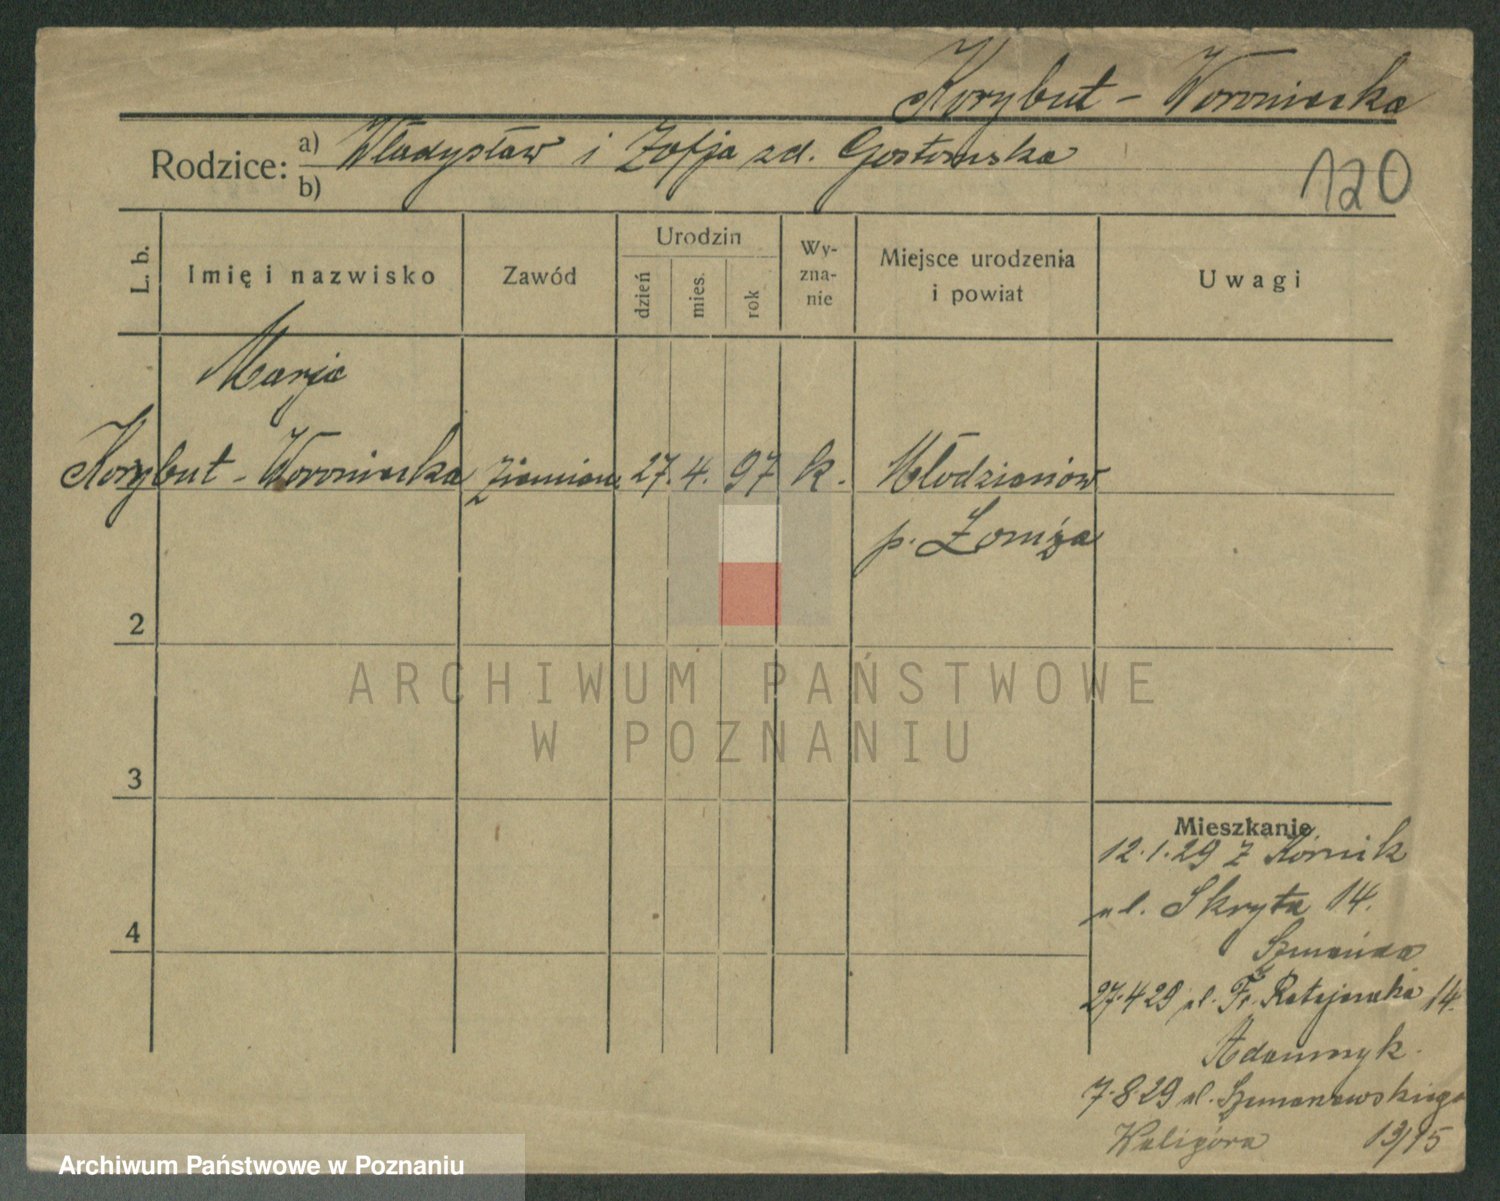 Korybut - Woroniecka
Rodzice: a) Władysław i Zofja zd. Gostomska
b)
120
L. b.
Imię i nazwisko
Zawód
Urodzin
dzień
mies.
rok
Wy-
zna-
nie
Miejsce urodzenia
i powiat
Uwagi
Marja
Korybut - Woroniecka
27. 4. 97
k.
Młodzianów
p. Łomża
2
3
4
Mieszkanie
12.1.29 z Kórnik
ul. Skryta 14.
Szmańda
27.4.29 ul. Fr. Ratajczaka 14.
Adamczyk.
7.8.29 ul. Szymanowskiego
Kaligóra 13/15
ARCHIWUM PAŃSTWOWE
W POZNANIU
Archiwum Państwowe w Poznaniu